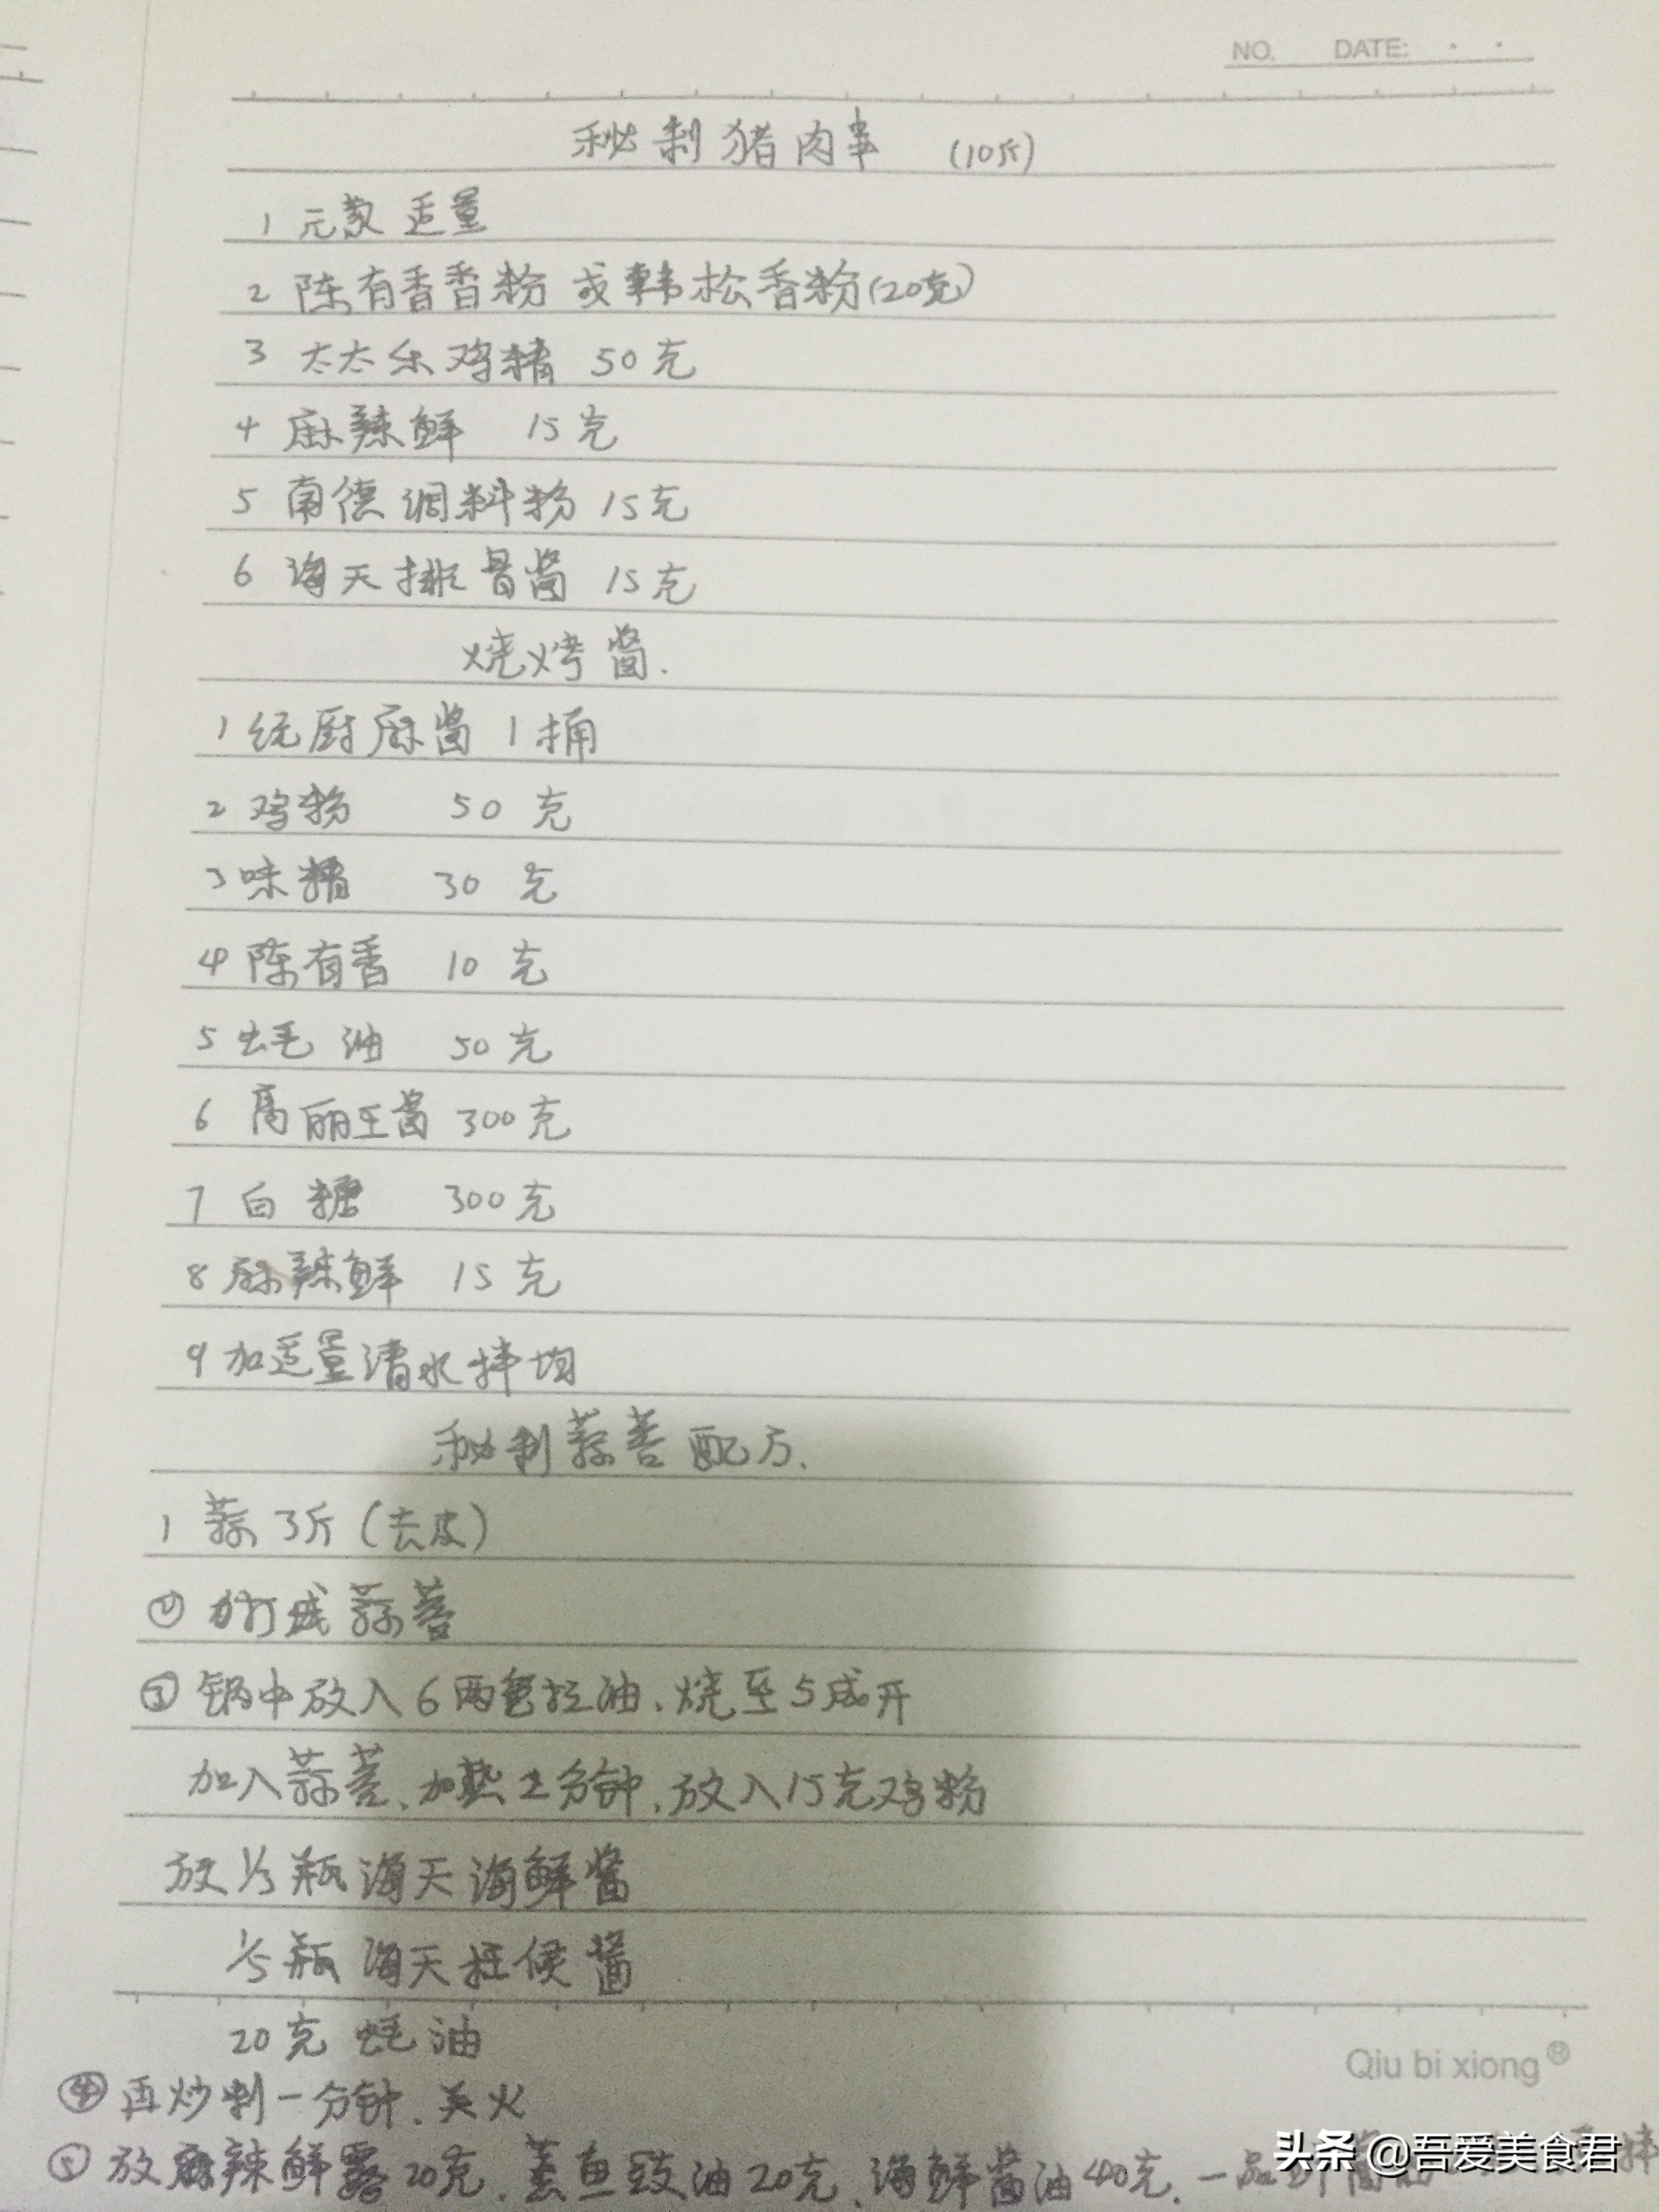 NO. DATE:
秘制猪肉串 (10斤)
1 元蒙 适量
2 陈有香香粉 或韩松香粉(20克)
3 太太乐鸡精 50克
4 麻辣鲜 15克
5 南德调料粉 15克
6 海天排骨酱 15克
烧烤酱.
1 统厨麻酱 1桶
2 鸡粉 50 克
3 味精 30 克
4 陈有香 10 克
5 蚝油 50 克
6 高丽王酱 300克
7 白糖 300克
8 麻辣鲜 15 克
9 加适量清水拌均
秘制蒜蓉配方.
1 蒜 3斤 (去皮)
② 打成蒜蓉
③ 锅中放入6两色拉油、烧至5成开
加入蒜蓉、加热2分钟、放入15克鸡粉
放⅓瓶海天海鲜酱
⅕瓶 海天柱候酱
20克 蚝油
Qiu bi xiong®
④ 再炒制一分钟、关火
⑤ 放麻辣鲜露20克、蒸鱼豉油20克、海鲜酱油40克、一品鲜酱油 拌
头条 @吾爱美食君